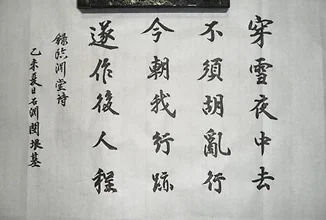 穿雪夜中去
不須胡亂行
今朝我行跡
遂作後人程
錄臨淵堂詩
乙未夏日石淵閔